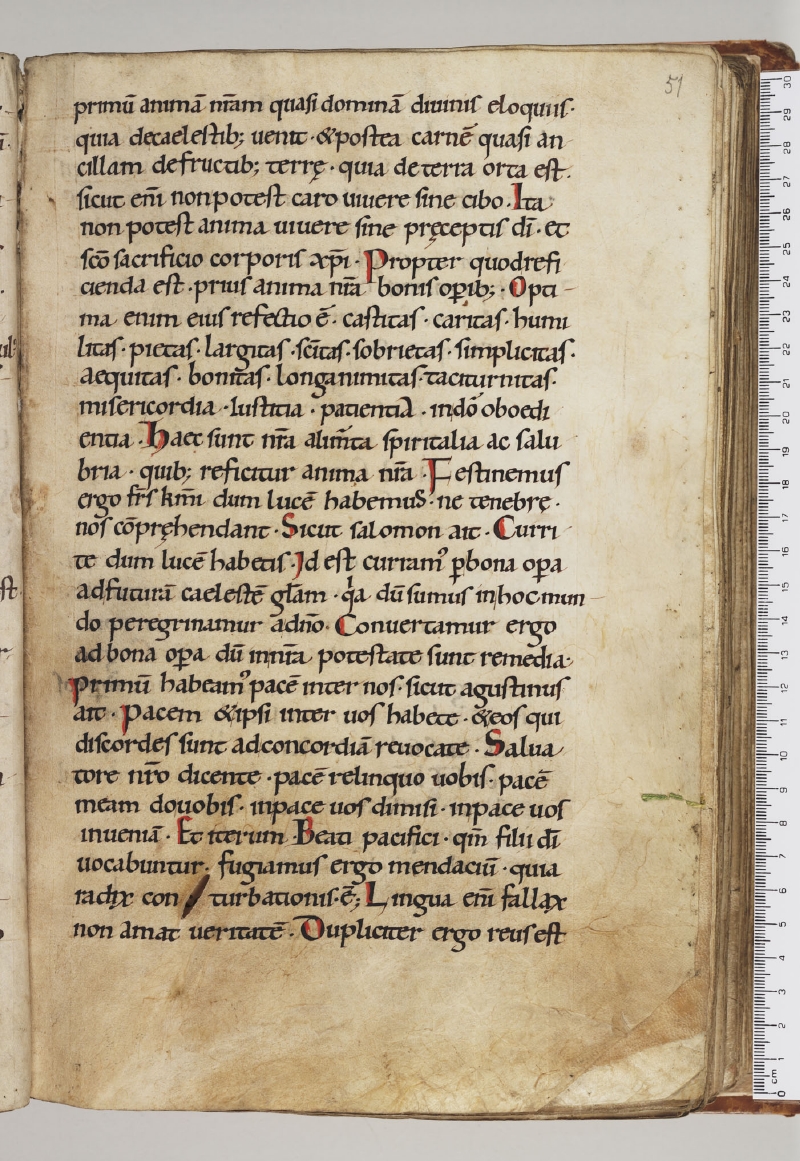 51
primū animā nr̄am quasi dominā diuinis eloquiis·
quia decaelestib; uenit·&postea carnē quasi an
cillam defructib; terrę· quia deterra orta est.
sicut eni̅ nonpotest caro uiuere sine cibo. Ita
non potest anima uiuere sine pręceptis di̅· et
sc̄o sacrificio corporis xp̄i· Propter quodrefi
cienda est· prius anima nr̄a bonis oꝑib;· Opti-
ma enim eius refectio ē· castitas· caritas· humi
litas· pietas· largitas· sc̄itas· sobrietas· simplicitas·
aequitas· bonitas· longanimitas· taciturnitas·
misericordia· Iustitia· patientia· indo̅ oboedi
entia· Haec sunt nr̄a alim̄ta spiritalia ac salu
bria· quib; reficitur anima nr̄a· Festinemus
ergo fr̄s km̄i dum lucē habemus· ne tenebrę·
nos cōpręhendant· Sicut salomon ait· Curri
te dum lucē habetis· Id est curramꝰ ꝑbona oꝑa
adfuturā caelestē gl̄am· qͣa dū sumus inhocmun-
do peregrinamur adn̄o· Conuertamur ergo
ad bona oꝑa dū innr̄a potestate sunt remedia·
primū habeamꝰ pacē inter nos· sicut agustinus
ait· Pacem &ipsi inter uos habete· &eos qui
discordes sunt adconcordiā reuocate· Salua
tore nr̄o dicente· pacē relinquo uobis· pacē
meam douobis· inpace uos dimisi· inpace uos
inueniā· Et iterum· Beati pacifici· qm̄ filii di̅
uocabuntur· fugiamus ergo mendaciū· quia
radix con turbationis· ē; Lingua eni̅ fallax
non amat ueritatē· Dupliciter ergo reus est
30
29
28
27
26
25
24
23
22
21
20
19
18
17
16
15
14
13
12
11
10
9
8
7
6
5
4
3
2
1
cm 0